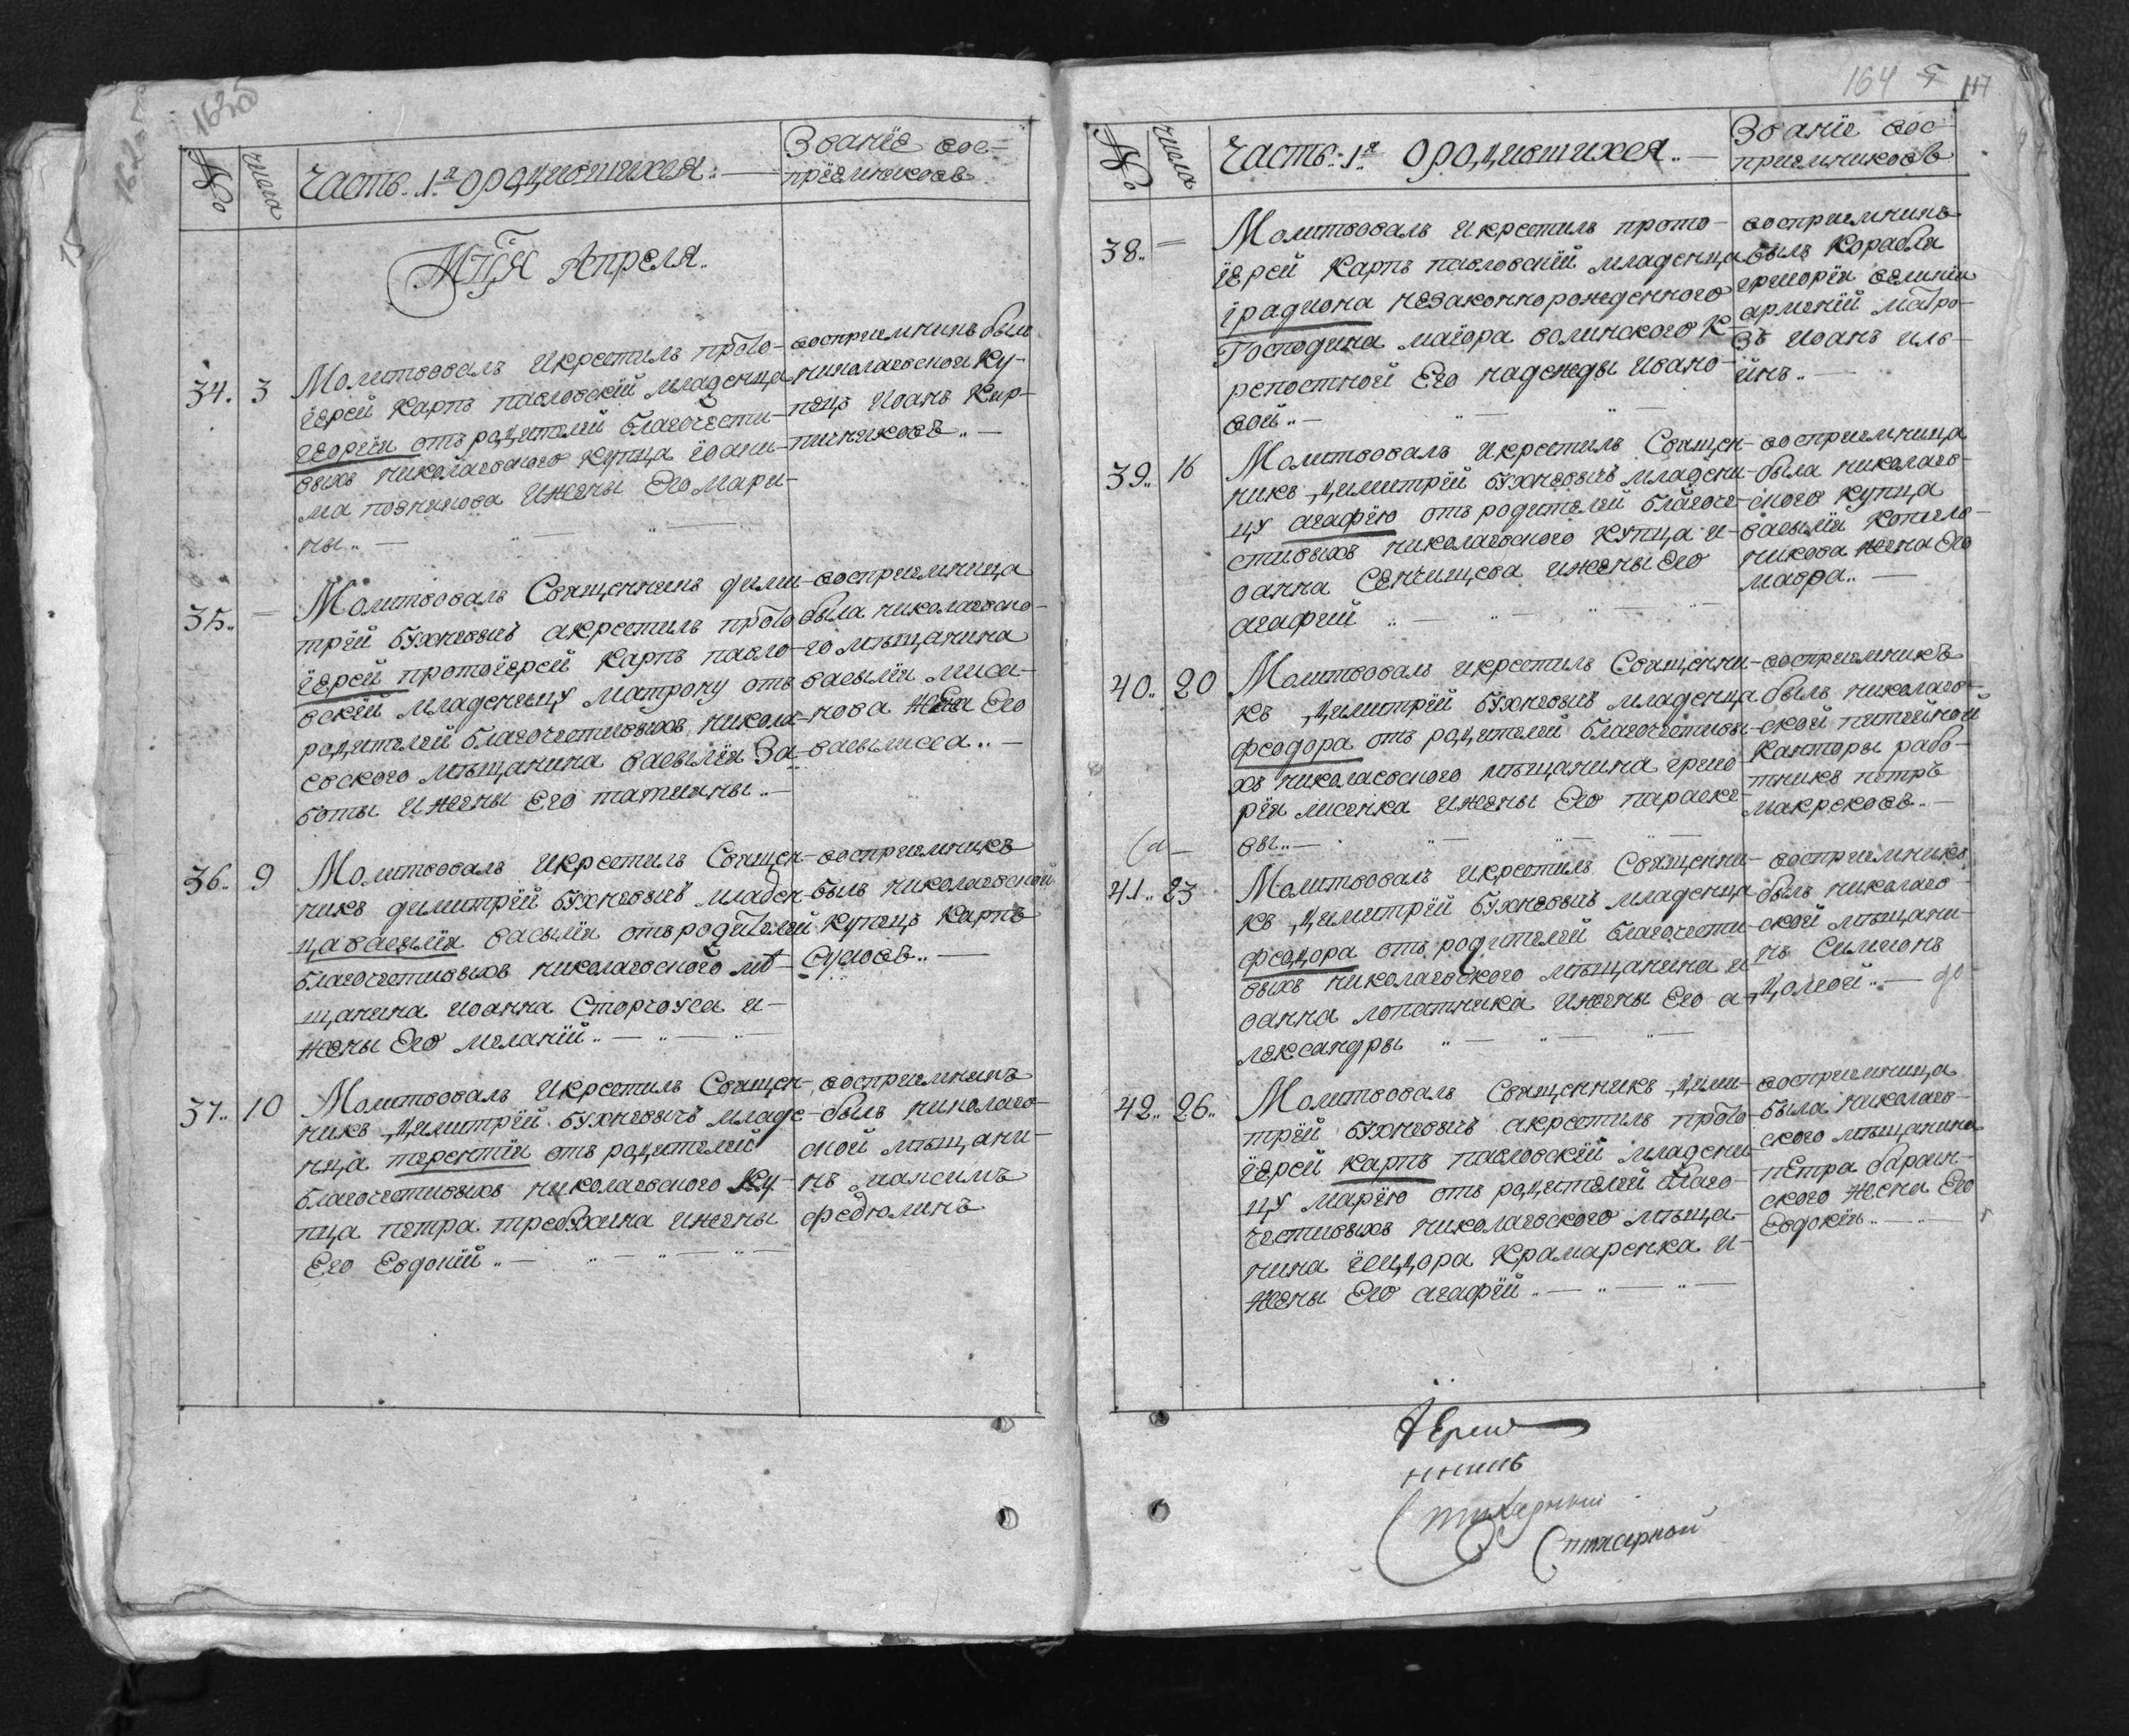 №
числа
Часть. 1я о родившихся.
Званїе вос-
прїемниковъ
Мца Апреля.
34. 3
Молитвовалъ и крестилъ прото-
їерей Карпъ павловскїй младенца
георгїя отъ родителей благочести-
выхъ николаевского купца їоанн-
на познякова и жены Его Мари-
ны..
восприемникъ былъ
николаевской ку-
пецъ Иоанъ Кир-
пичниковъ..
35..
Молитвовалъ Священникъ дими-
трїй бѣхневичъ а крестилъ прото
їерей протоїерей Карпъ павло-
вскїй младеницу матрону отъ
родителей благочестивыхъ никола-
евского мѣщанина василїя За-
боты и жены Его татияны..
восприемница
была николаевско-
го мѣщанина
василїя лиси-
нова жена Его
василисса..
36. 9
Молитвовалъ и крестилъ Священ-
никъ димитрїй бѣхневичъ младен-
ца василїя василїя отъ родителей
благочестивыхъ николаевского мѣ-
щанина иоанна Сторчоуса и
жены Его меланїй..
восприемникъ
былъ николаевской
купецъ Карпъ
Сусловъ..
37.. 10
Молитвовалъ и крестилъ Священ-
никъ димитрїй бѣхневичъ младе-
нца терентїя отъ родителей
благочестивыхъ николаевского ку-
пца петра требхина и жены
Его Евдокїй..
восприемникъ
былъ николаев-
ской мѣщани-
нъ максимъ
федюлинъ
164 117
№
числа
Часть: 1я о родившихся..
Званїе вос-
приемниковъ
38..
Молитвовалъ и крестилъ прото-
їерей Карпъ павловскїй младенца
їрадиона незаконнорожденного
Господина маїора волинского к-
репостной Его надежды Ивано-
вой..
восприемникъ
былъ Корабля
григорїя великїя
арменїй матро-
зъ иоанъ иль-
инъ..
39.. 16
Молитвовалъ и крестилъ Священ-
никъ димитрїй бѣхневичъ младени-
цу агафїю отъ родителей благоче-
стивыхъ николаевского купца и-
оанна Сенчищева и жены Его
агафїй
восприемница
была николаев-
ского купца
василїя Копило-
никова жена Его
мавра..
40.. 20
Молитвовалъ и крестилъ Священни-
къ димитрїй бѣхневичъ младенца
феодора отъ родителей благочестивы-
хъ николаевского мѣщанина григо-
рїя лисенка и жены Его параске-
вы..
восприемникъ
былъ николаев-
ской питейной
Канторы рабо-
тникъ петръ
макрековъ..
41.. 23
Молитвовалъ и крестилъ Священни-
къ димитрїй бѣхневичъ младенца
феодора отъ родителей благочести-
выхъ николаевского мѣщанина и-
оанна лопатника и жены Его а-
лександры
восприемникъ
былъ николаев-
ской мѣщани-
нъ Симеонъ
долгой..
42.. 26..
Молитвовалъ Священникъ дими-
трїй бѣхневичъ а крестилъ прото
їерей карпъ павловскїй младени-
цу марїю отъ родителей благо-
честивыхъ николаевского мѣща-
нина їсидора Крамаренка и
жены Его агафїй..
восприемница
была николаев-
ского мѣщанина
петра барсин-
ского жена Его
Евдокїя..
їерей